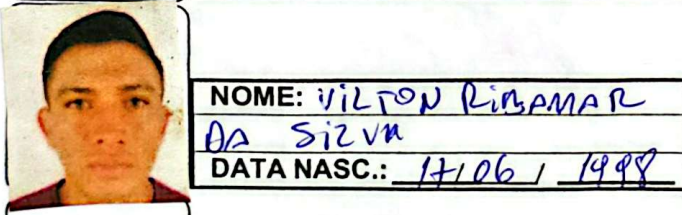 NOME: VILTON RIBAMAR
DA SILVA
DATA NASC.: 17/06/1998